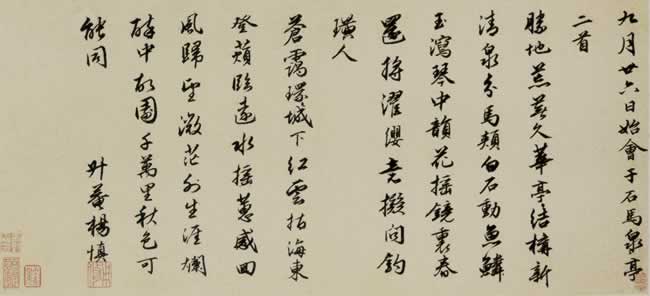 九月廿六日始會于石馬泉亭
二首
勝地荒蕪久華亭結構新
清泉分馬頰白石動魚鱗
玉瀉琴中韻花搖鏡裏春
還將濯纓擬問釣
璜人
蒼靄環城下紅雲指海東
登蘋臨遠水搖蕙感回
風歸望微茫外生涯爛
醉中故園千萬里秋色可
能同 升菴楊慎